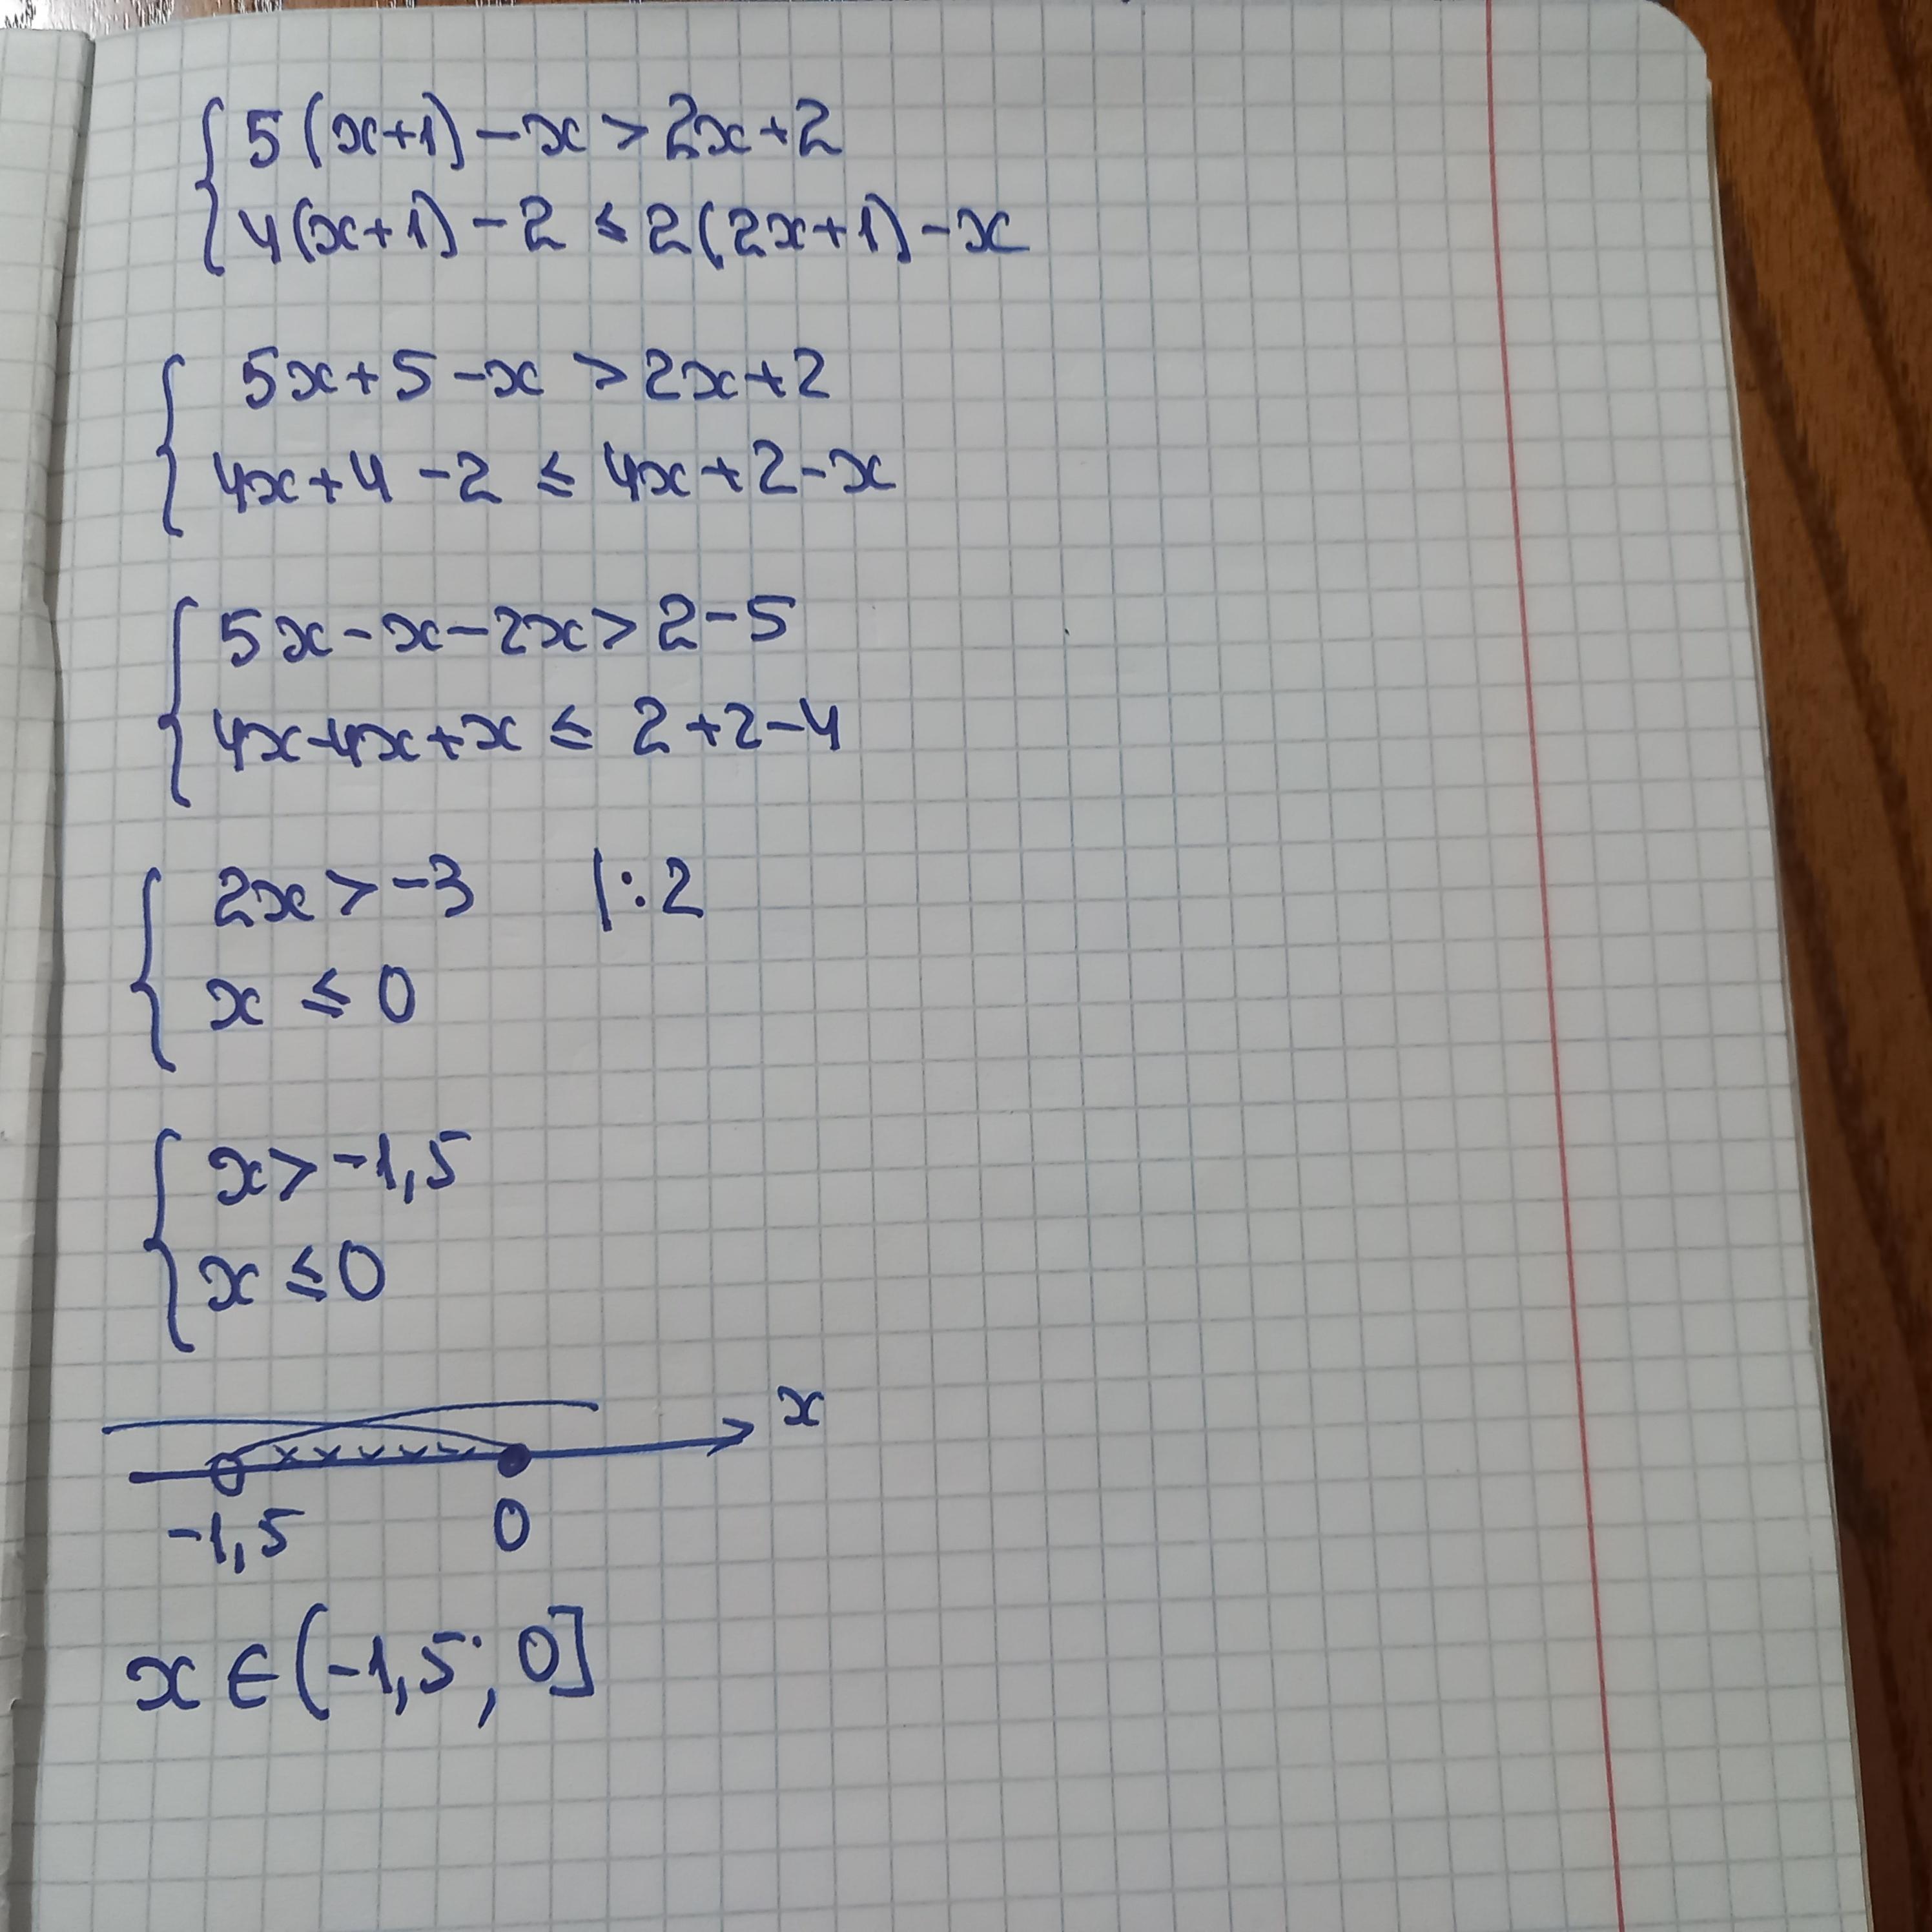 5(x+1)-x>2x+2
4(x+1)-2≤2(2x+1)-x
5x+5-x>2x+2
4x+4-2≤4x+2-x
5x-x-2x>2-5
4x-4x+x≤2+2-4
2x>-3 |:2
x≤0
x>-1,5
x≤0
x
-1,5 0
x∈(-1,5; 0]